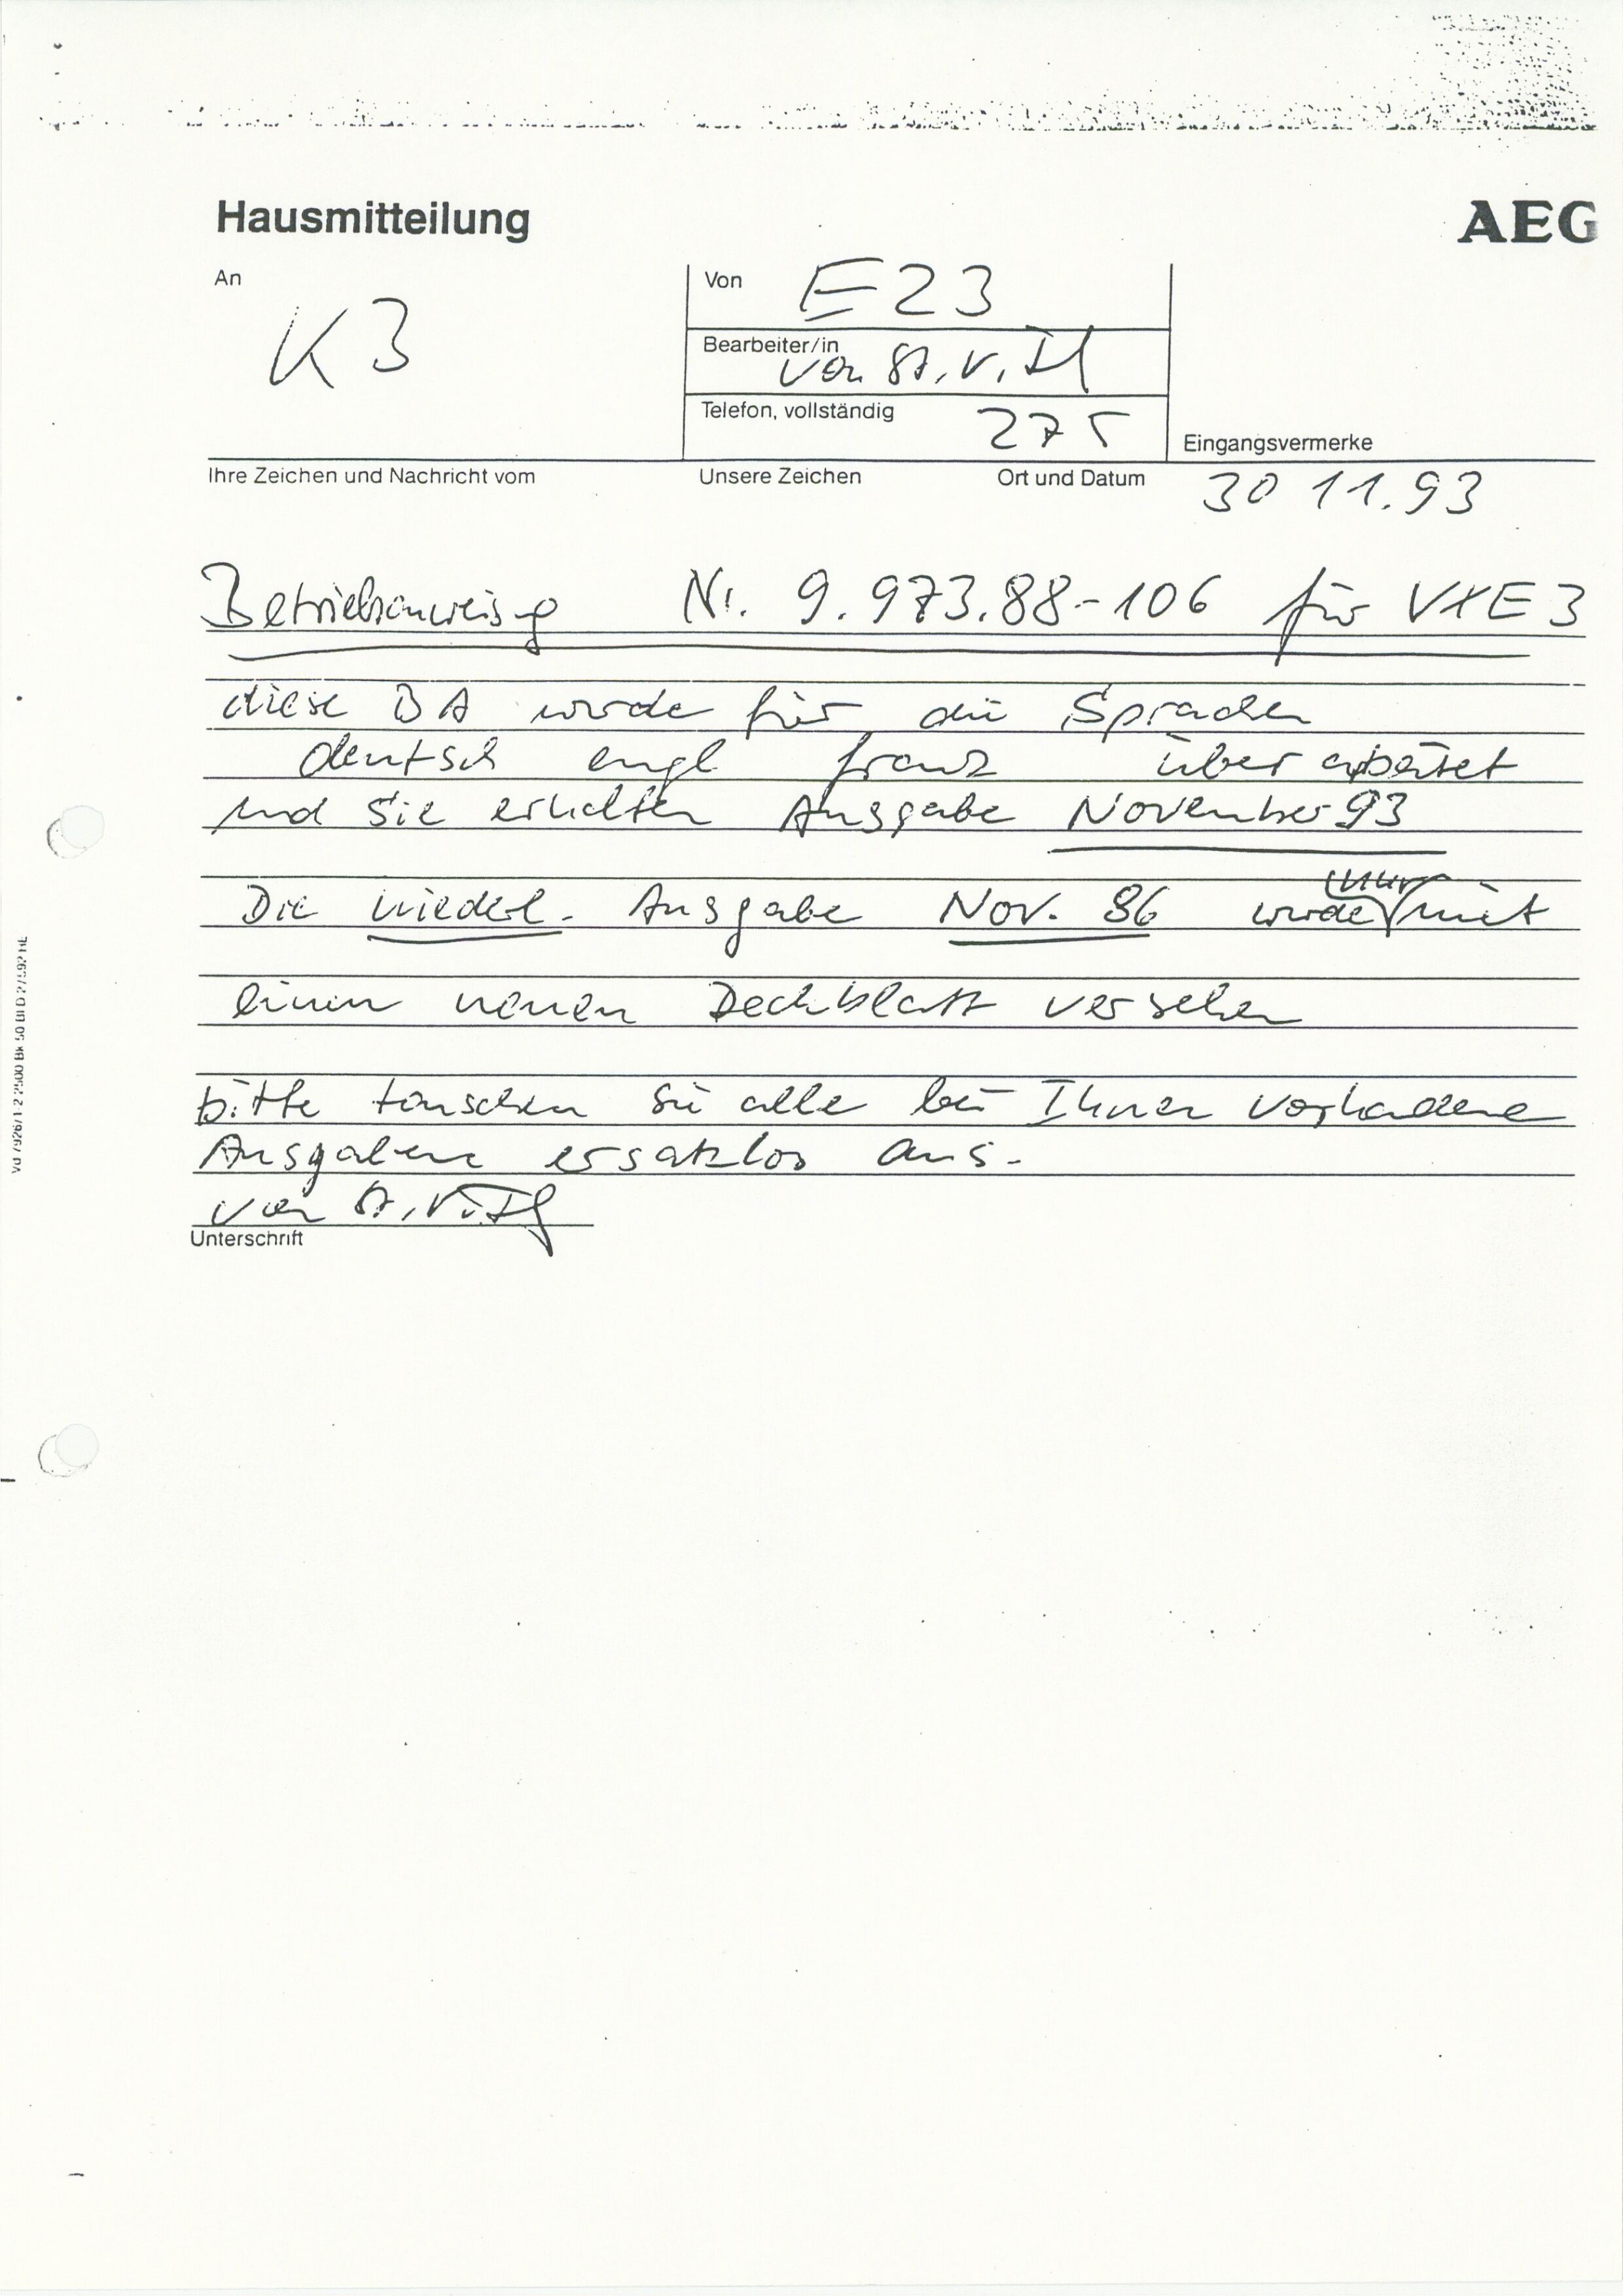 Hausmitteilung
AEG
An
K3
Von
E23
Bearbeiter/in
von
Telefon, vollständig
275
Eingangsvermerke
Ihre Zeichen und Nachricht vom
Unsere Zeichen
Ort und Datum
30 11.93
Betriebsanweisung Nr. 9.973.88-106 für VXE 3
diese BA wurde für die Sprachen
deutsch engl franz überarbeitet
und Sie erhalten Ausgabe November 93
Die niederl. Ausgabe Nov. 86 wurde mit
einen neuen Deckblatt versehen
bitte tauschen Sie alle bei Ihnen vorhandene
Ausgaben ersatzlos aus.
von
Unterschrift